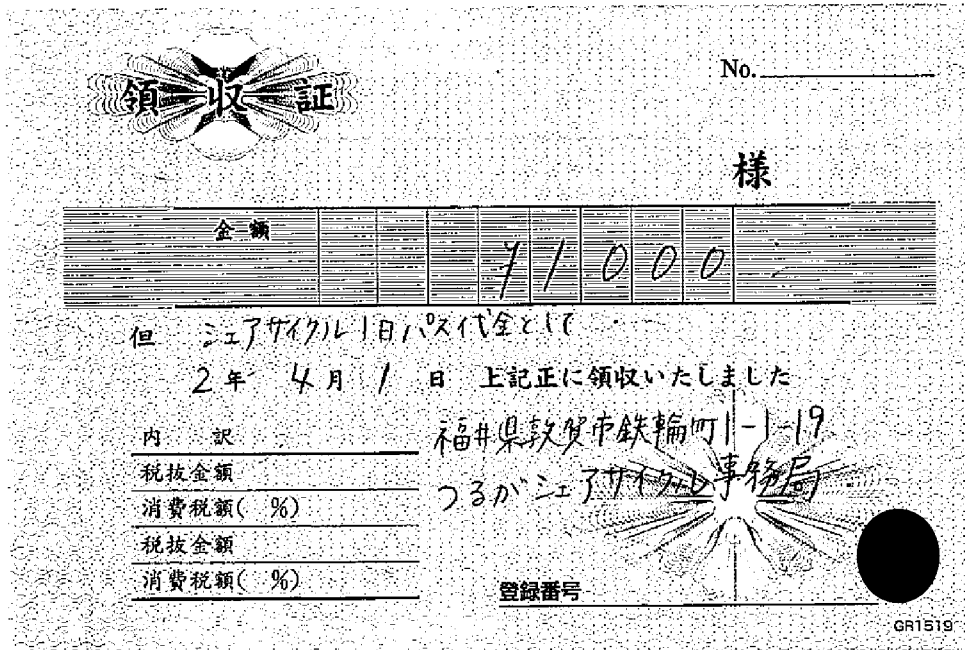 領収証
No.
様
金額 ¥1000
但 シェアサイクル1日パス代金として
2年 4月 1日 上記正に領収いたしました
内 訳
税抜金額
消費税額( %)
税抜金額
消費税額( %)
福井県敦賀市鉄輪町1-1-19
つるがシェアサイクル事務局
登録番号
GR1519